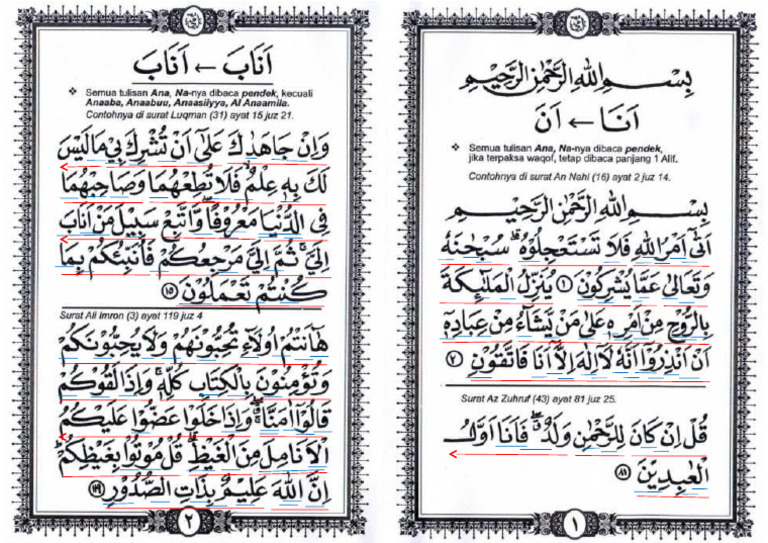 بِسْمِ اللهِ الرَّحْمٰنِ الرَّحِيْمِ
اَنَا ← اَنَ
❖ Semua tulisan Ana, Na-nya dibaca pendek,
jika terpaksa waqof, tetap dibaca panjang 1 Alif.
Contohnya di surat An Nahl (16) ayat 2 juz 14.
بِسْمِ اللهِ الرَّحْمٰنِ الرَّحِيْمِ
اَتٰىٓ اَمْرُ اللهِ فَلَا تَسْتَعْجِلُوْهُ ۗ سُبْحٰنَهٗ
وَتَعَالٰى عَمَّا يُشْرِكُوْنَ ١ يُنَزِّلُ الْمَلٰٓئِكَةَ
بِالرُّوْحِ مِنْ اَمْرِهٖ عَلٰى مَنْ يَّشَاۤءُ مِنْ عِبَادِهٖٓ
اَنْ اَنْذِرُوْٓا اَنَّهٗ لَآ اِلٰهَ اِلَّآ اَنَا۠ فَاتَّقُوْنِ ٢
Surat Az Zuhruf (43) ayat 81 juz 25.
قُلْ اِنْ كَانَ لِلرَّحْمٰنِ وَلَدٌ ۖ فَاَنَا۠ اَوَّلُ
الْعٰبِدِيْنَ ٨١
١
اَنَابَ ← اَنَابَ
❖ Semua tulisan Ana, Na-nya dibaca pendek, kecuali
Anaaba, Anaabuu, Anaasilyya, Al Anaamila.
Contohnya di surat Luqman (31) ayat 15 juz 21.
وَاِنْ جَاهَدٰكَ عَلٰٓى اَنْ تُشْرِكَ بِيْ مَا لَيْسَ
لَكَ بِهٖ عِلْمٌ فَلَا تُطِعْهُمَا وَصَاحِبْهُمَا
فِى الدُّنْيَا مَعْرُوْفًا ۖ وَّاتَّبِعْ سَبِيْلَ مَنْ اَنَابَ
اِلَيَّ ۚ ثُمَّ اِلَيَّ مَرْجِعُكُمْ فَاُنَبِّئُكُمْ بِمَا
كُنْتُمْ تَعْمَلُوْنَ ١٥
Surat Ali Imron (3) ayat 119 juz 4
هٰٓاَنْتُمْ اُولَاۤءِ تُحِبُّوْنَهُمْ وَلَا يُحِبُّوْنَكُمْ
وَتُؤْمِنُوْنَ بِالْكِتٰبِ كُلِّهٖ ۚ وَاِذَا لَقُوْكُمْ
قَالُوْٓا اٰمَنَّا ۖ وَاِذَا خَلَوْا عَضُّوْا عَلَيْكُمُ
الْاَنَامِلَ مِنَ الْغَيْظِ ۗ قُلْ مُوْتُوْا بِغَيْظِكُمْ ۗ
اِنَّ اللهَ عَلِيْمٌ ۢ بِذَاتِ الصُّدُوْرِ ١١٩
٢